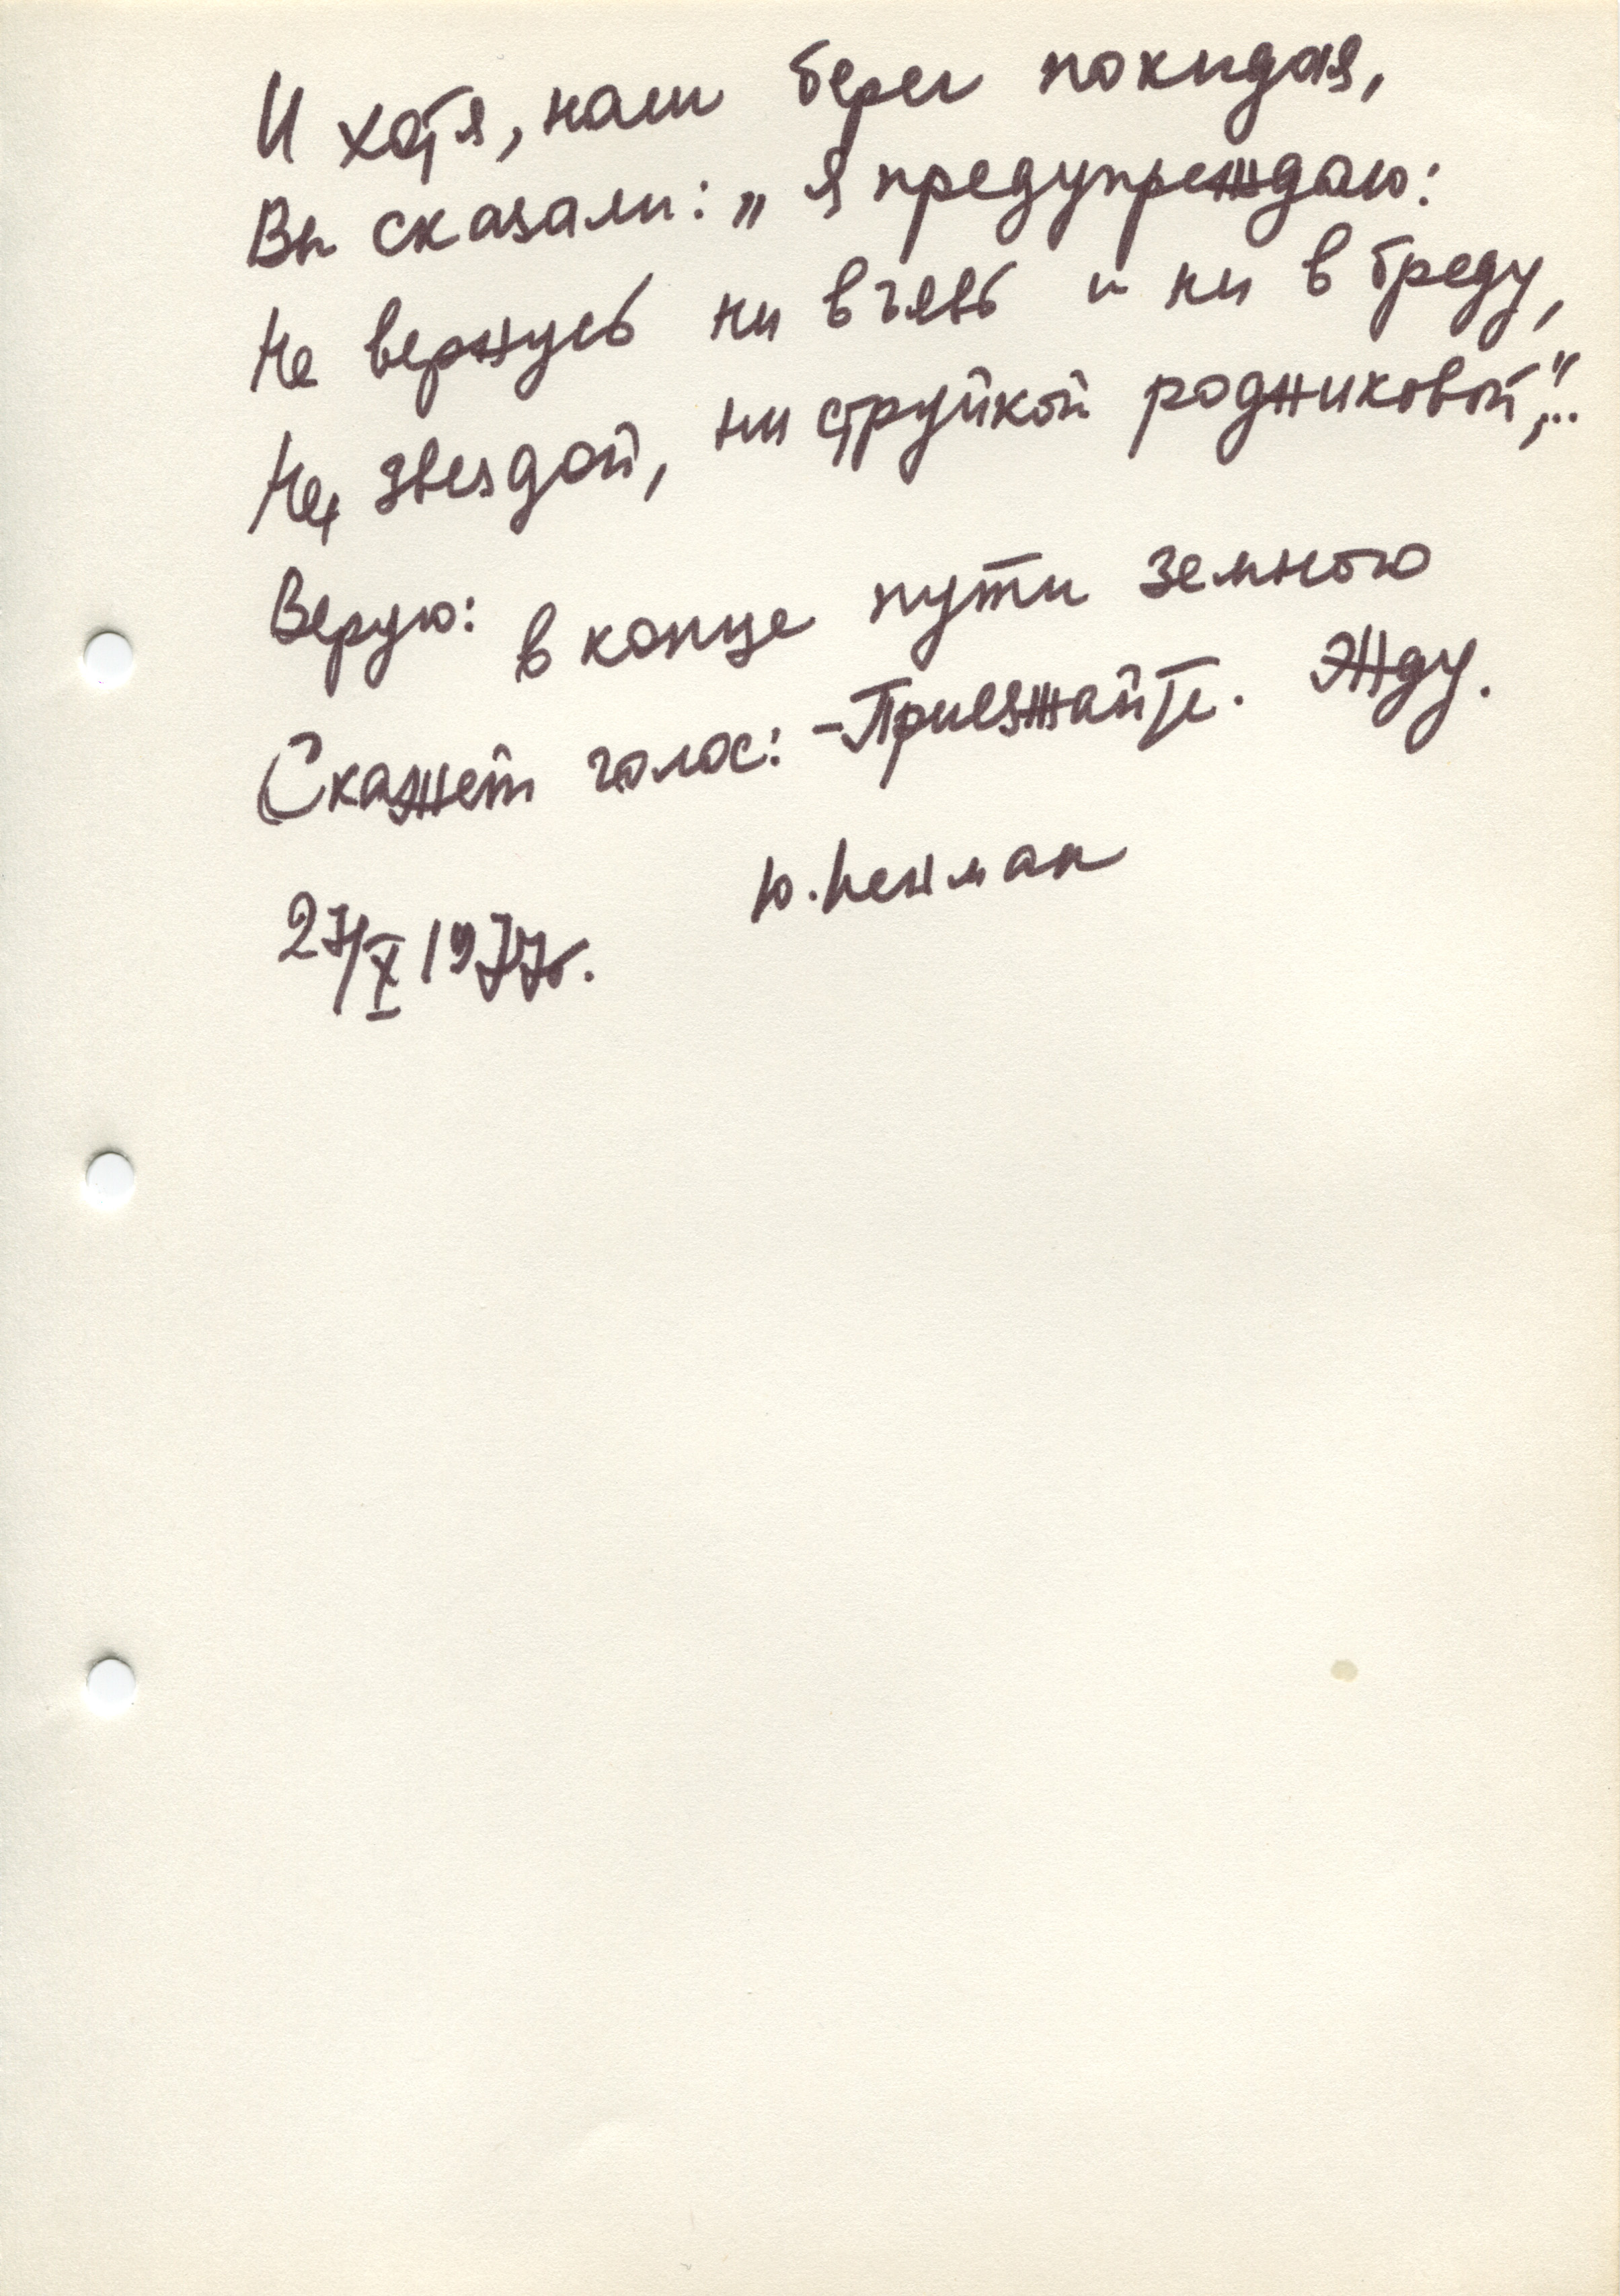 И хотя, наш берег покидая,
Вы сказали: „Я предупреждаю:
Не вернусь ни въявь и ни в бреду,
Не звездой, ни струйкой родниковой,"...
Верую: в конце пути земного
Скажет голос: – Приезжайте. Жду.
Ю. Нейман
27/X 1977г.